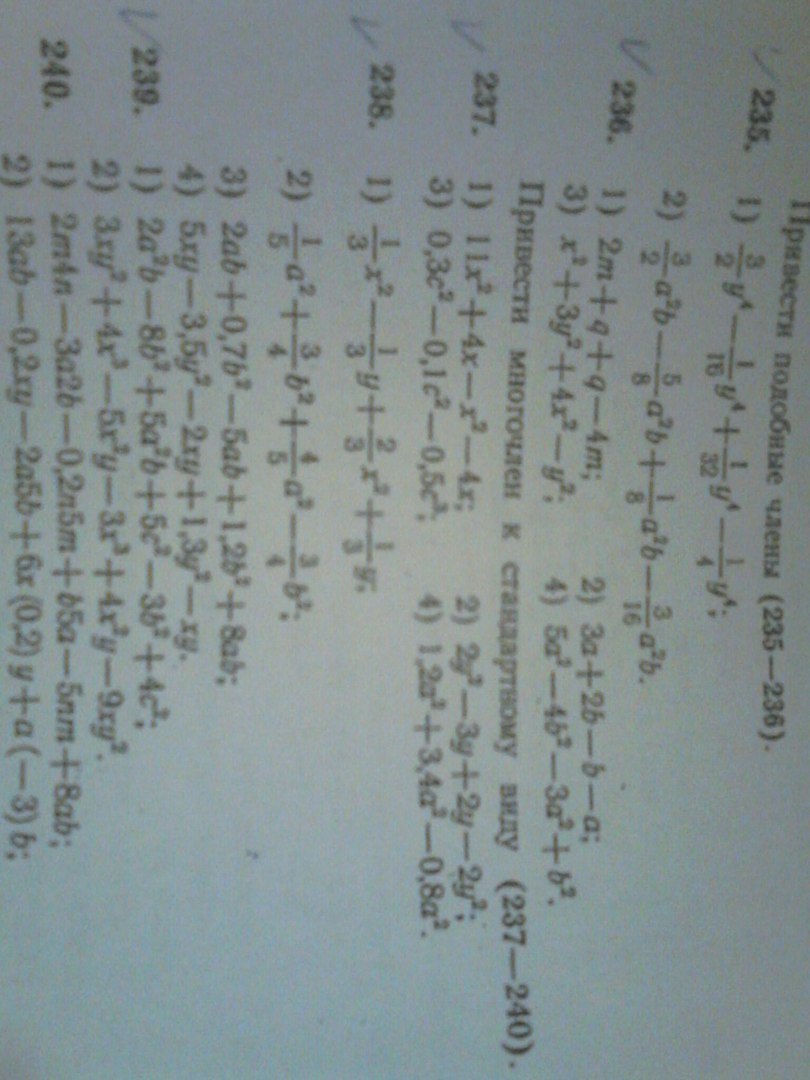 Привести подобные члены (235—236).
235. 1) 3/2 y⁴ − 1/16 y⁴ + 1/32 y⁴ − 1/4 y⁴;
2) 3/2 a²b − 5/8 a²b + 1/8 a²b − 3/16 a²b.
236. 1) 2m+q+q−4m; 2) 3a+2b−b−a;
3) x²+3y²+4x²−y²; 4) 5a²−4b²−3a²+b².
Привести многочлен к стандартному виду (237—240).
237. 1) 11x²+4x−x²−4x; 2) 2y²−3y+2y−2y²;
3) 0,3c²−0,1c²−0,5c²; 4) 1,2a²+3,4a²−0,8a².
238. 1) 1/3 x² − 1/3 y + 2/3 x² + 1/3 y;
2) 1/5 a² + 3/4 b² + 4/5 a² − 3/4 b²;
3) 2ab+0,7b²−5ab+1,2b²+8ab;
4) 5xy−3,5y²−2xy+1,3y²−xy.
239. 1) 2a²b−8b²+5a²b+5c²−3b²+4c²;
2) 3xy²+4x³−5x²y−3x³+4x²y−9xy².
240. 1) 2m4n−3a2b−0,2n5m+b5a−5nm+8ab;
2) 13ab−0,2xy−2a5b+6x(0,2)y+a(−3)b;